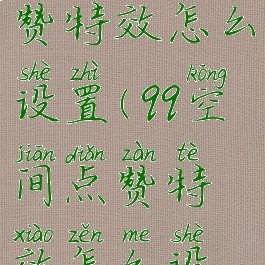 赞特效怎么
shè zhì kōng
设置(99空
jiān diǎn zàn tè
间点赞特
xiào zěn me shè
效怎么设